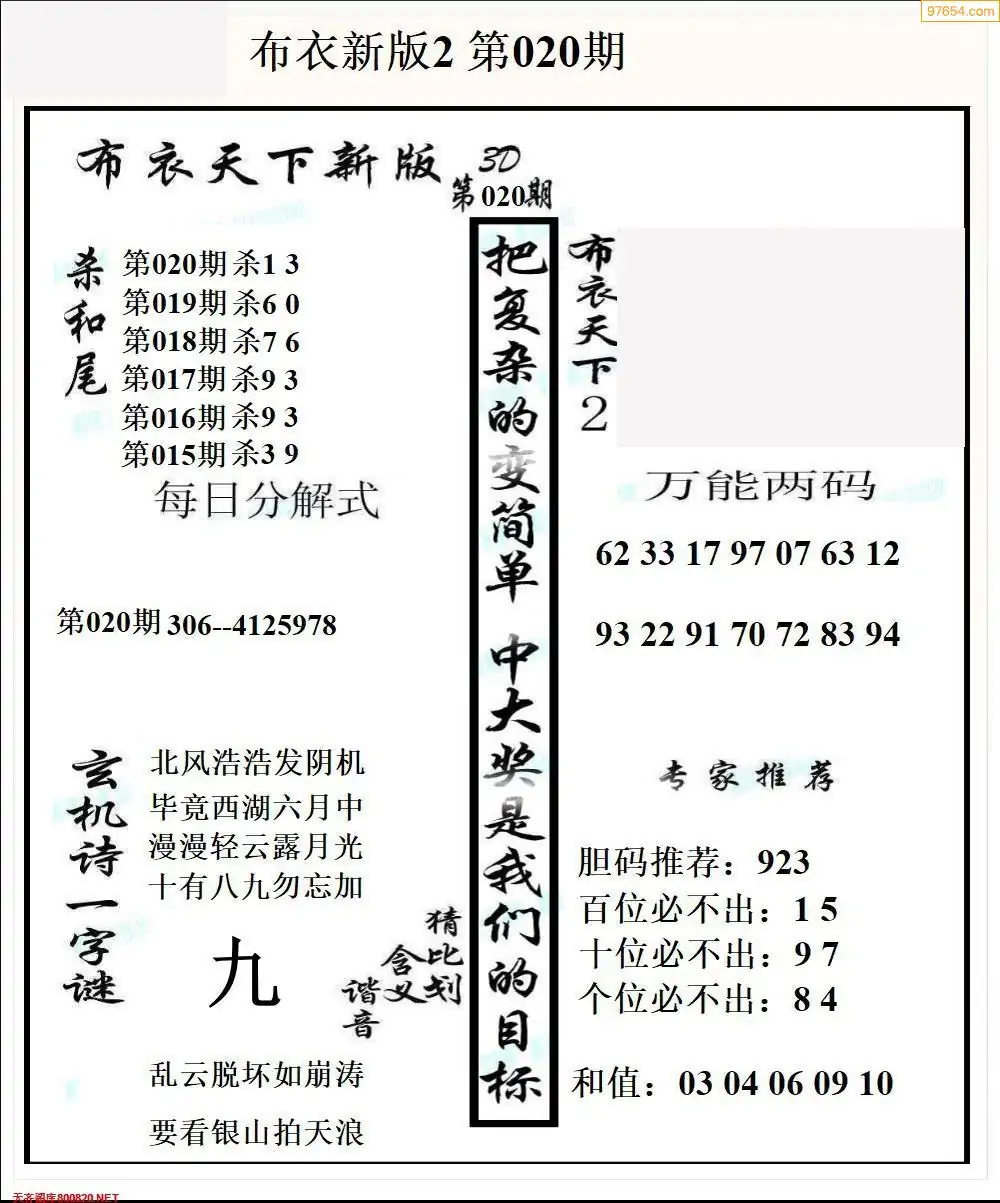 97654.com
布衣新版2 第020期
布衣天下新版 3D
第020期
杀和尾
第020期 杀1 3
第019期 杀6 0
第018期 杀7 6
第017期 杀9 3
第016期 杀9 3
第015期 杀3 9
每日分解式
第020期 306--4125978
玄机诗一字谜
北风浩浩发阴机
毕竟西湖六月中
漫漫轻云露月光
十有八九勿忘加
九
猜比划
含义
谐音
乱云脱坏如崩涛
要看银山拍天浪
把复杂的变简单 中大奖是我们的目标
布衣天下2
万能两码
62 33 17 97 07 63 12
93 22 91 70 72 83 94
专家推荐
胆码推荐：923
百位必不出：1 5
十位必不出：9 7
个位必不出：8 4
和值：03 04 06 09 10
天齐图库800820.NET